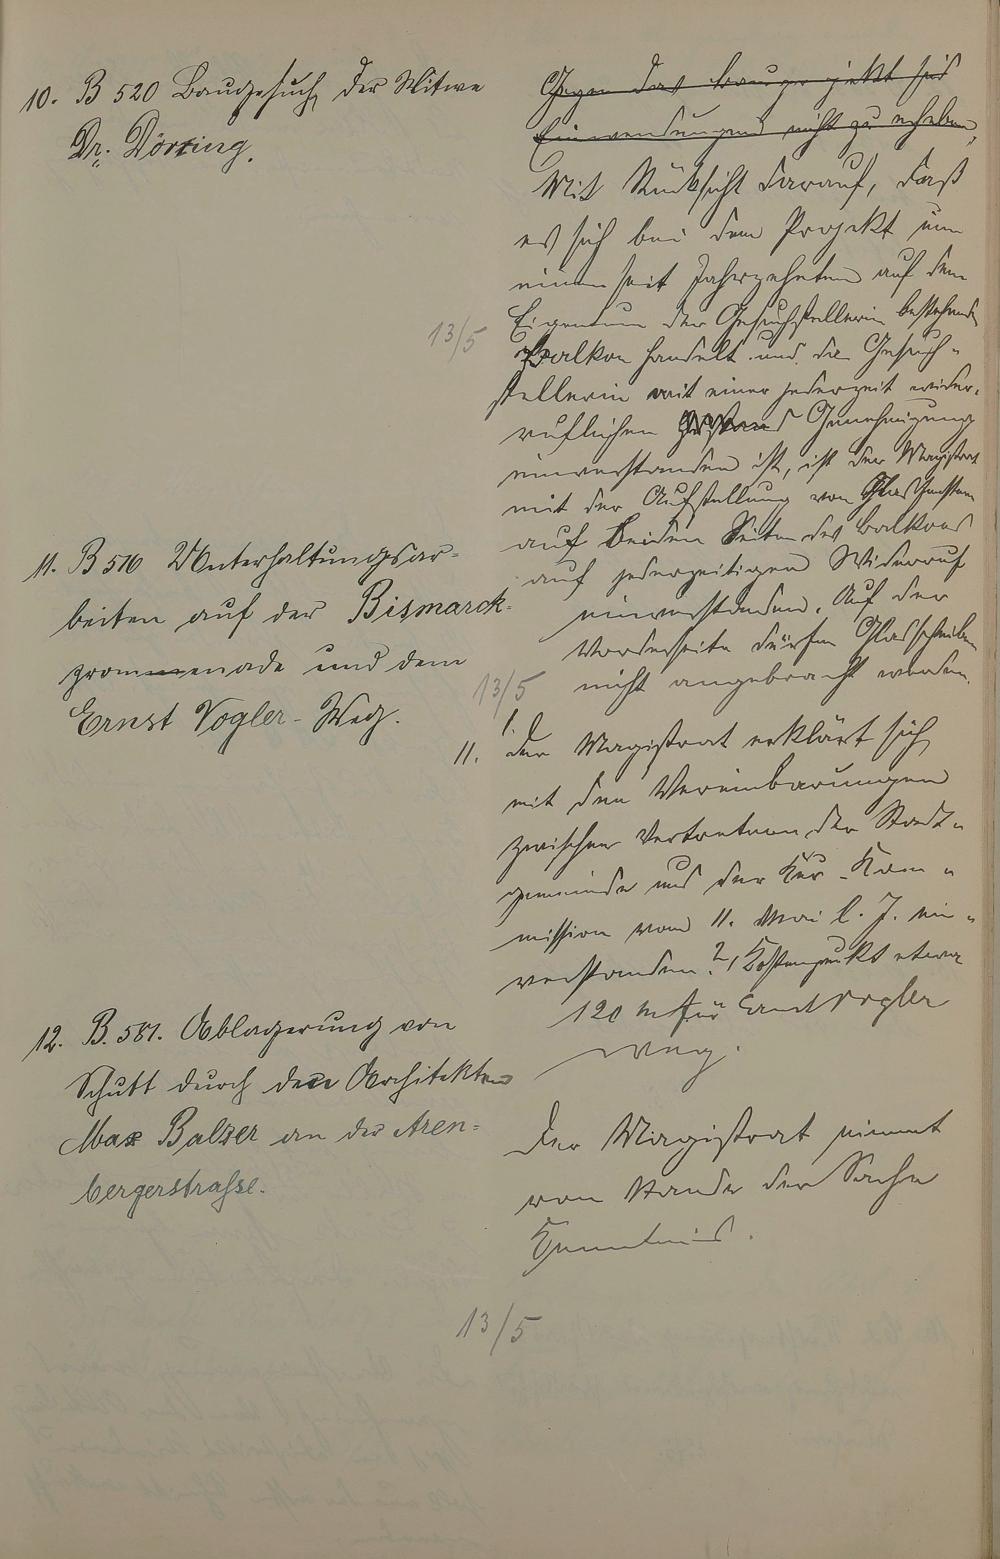 10. B 520 Baugesuch der Witwe
Dr. Dörring.
Gegen das Bauprojekt sind
Einwendungen nicht zu erheben.
Mit Rücksicht darauf, daß
es sich bei dem Projekt um
einen seit Jahrzehnten auf dem
Eigentum der Gesuchstellerin bestehenden
Balkon handelt und die Gesuch-
stellerin mit einer jederzeit wider-
ruflichen Genehmigung
einverstanden ist, ist der Magistrat
mit der Aufstellung von Glasfenstern
auf beiden Seiten des Balkons
auf jederzeitigen Widerruf
einverstanden. Auf der
Vorderseite dürfen Glasscheiben
nicht angebracht werden.
13/5
11. B 576 Unterhaltungsar-
beiten auf der Bismarck-
promenade und dem
Ernst Vogler-Weg.
13/5
11. 1. Der Magistrat erklärt sich
mit den Vereinbarungen
zwischen Vertretern der Stadt-
gemeinde und der Kur-Kom-
mission vom 11. Mai l. J. ein-
verstanden. 2, Kostenpunkt etwa
120 M für Ernst Vogler
Weg.
12. B. 581. Ablagerung von
Schutt durch den Architekten
Max Balzer an der Aren-
bergerstrasse.
Der Magistrat nimmt
vom Stande der Sache
Kenntnis.
13/5